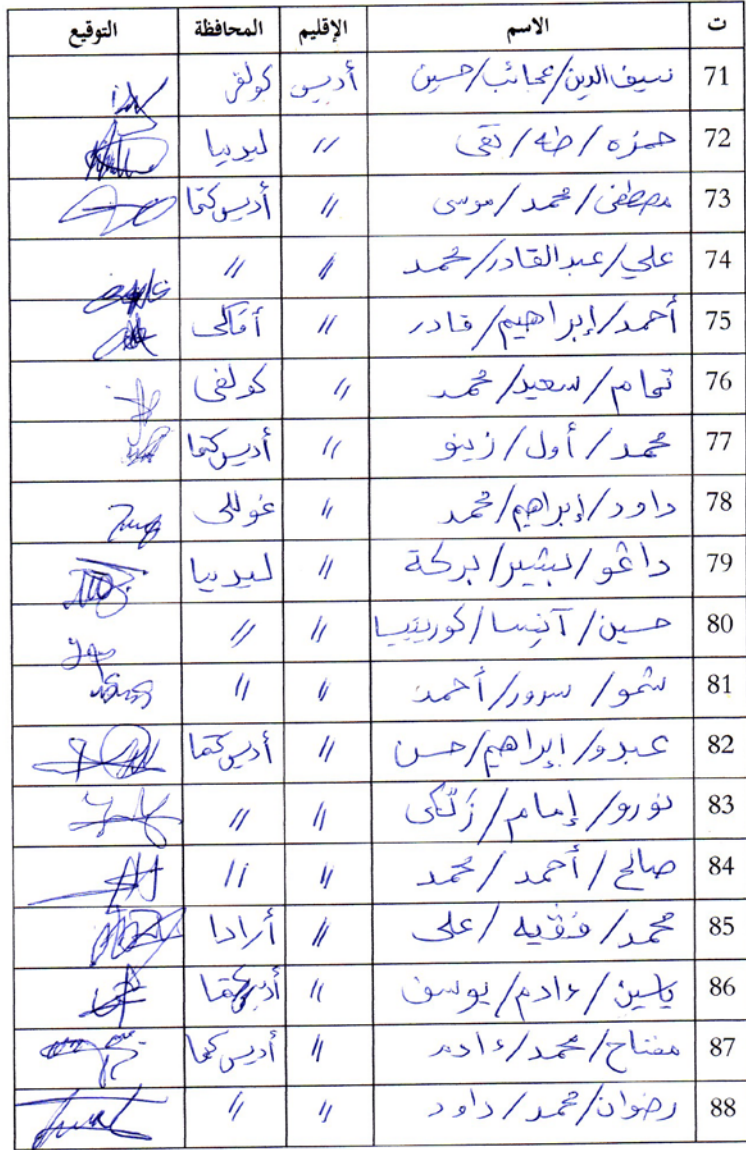 ت الاسم الإقليم المحافظة التوقيع
71 نسيف الدين/عجائب/حسين أديس كولفى
72 حمزه/طه/تقى " ليديبا
73 مصطفى/محمد/موسى " أديس كتما
74 علي/عبد القادر/محمد " "
75 أحمد/إبراهيم/قادر " أقاكى
76 تمام/سعيد/محمد " كولفى
77 محمد/أول/زينو " أديس كتما
78 داود/إبراهيم/محمد " غوللى
79 داغو/بشير/بركة " ليديبا
80 حسين/آنيسا/ " "
81 شمو/سرور/أحمد " "
82 عبدو/إبراهيم/حسن " أديس كتما
83 نورو/إمام/زلكى " "
84 صالح/أحمد/محمد " "
85 محمد/فقيه/على " أرادا
86 ياسين/ءادم/يوسف " أديس كتما
87 مفتاح/محمد/ءادم " أديس كتما
88 رضوان/محمد/داود " "